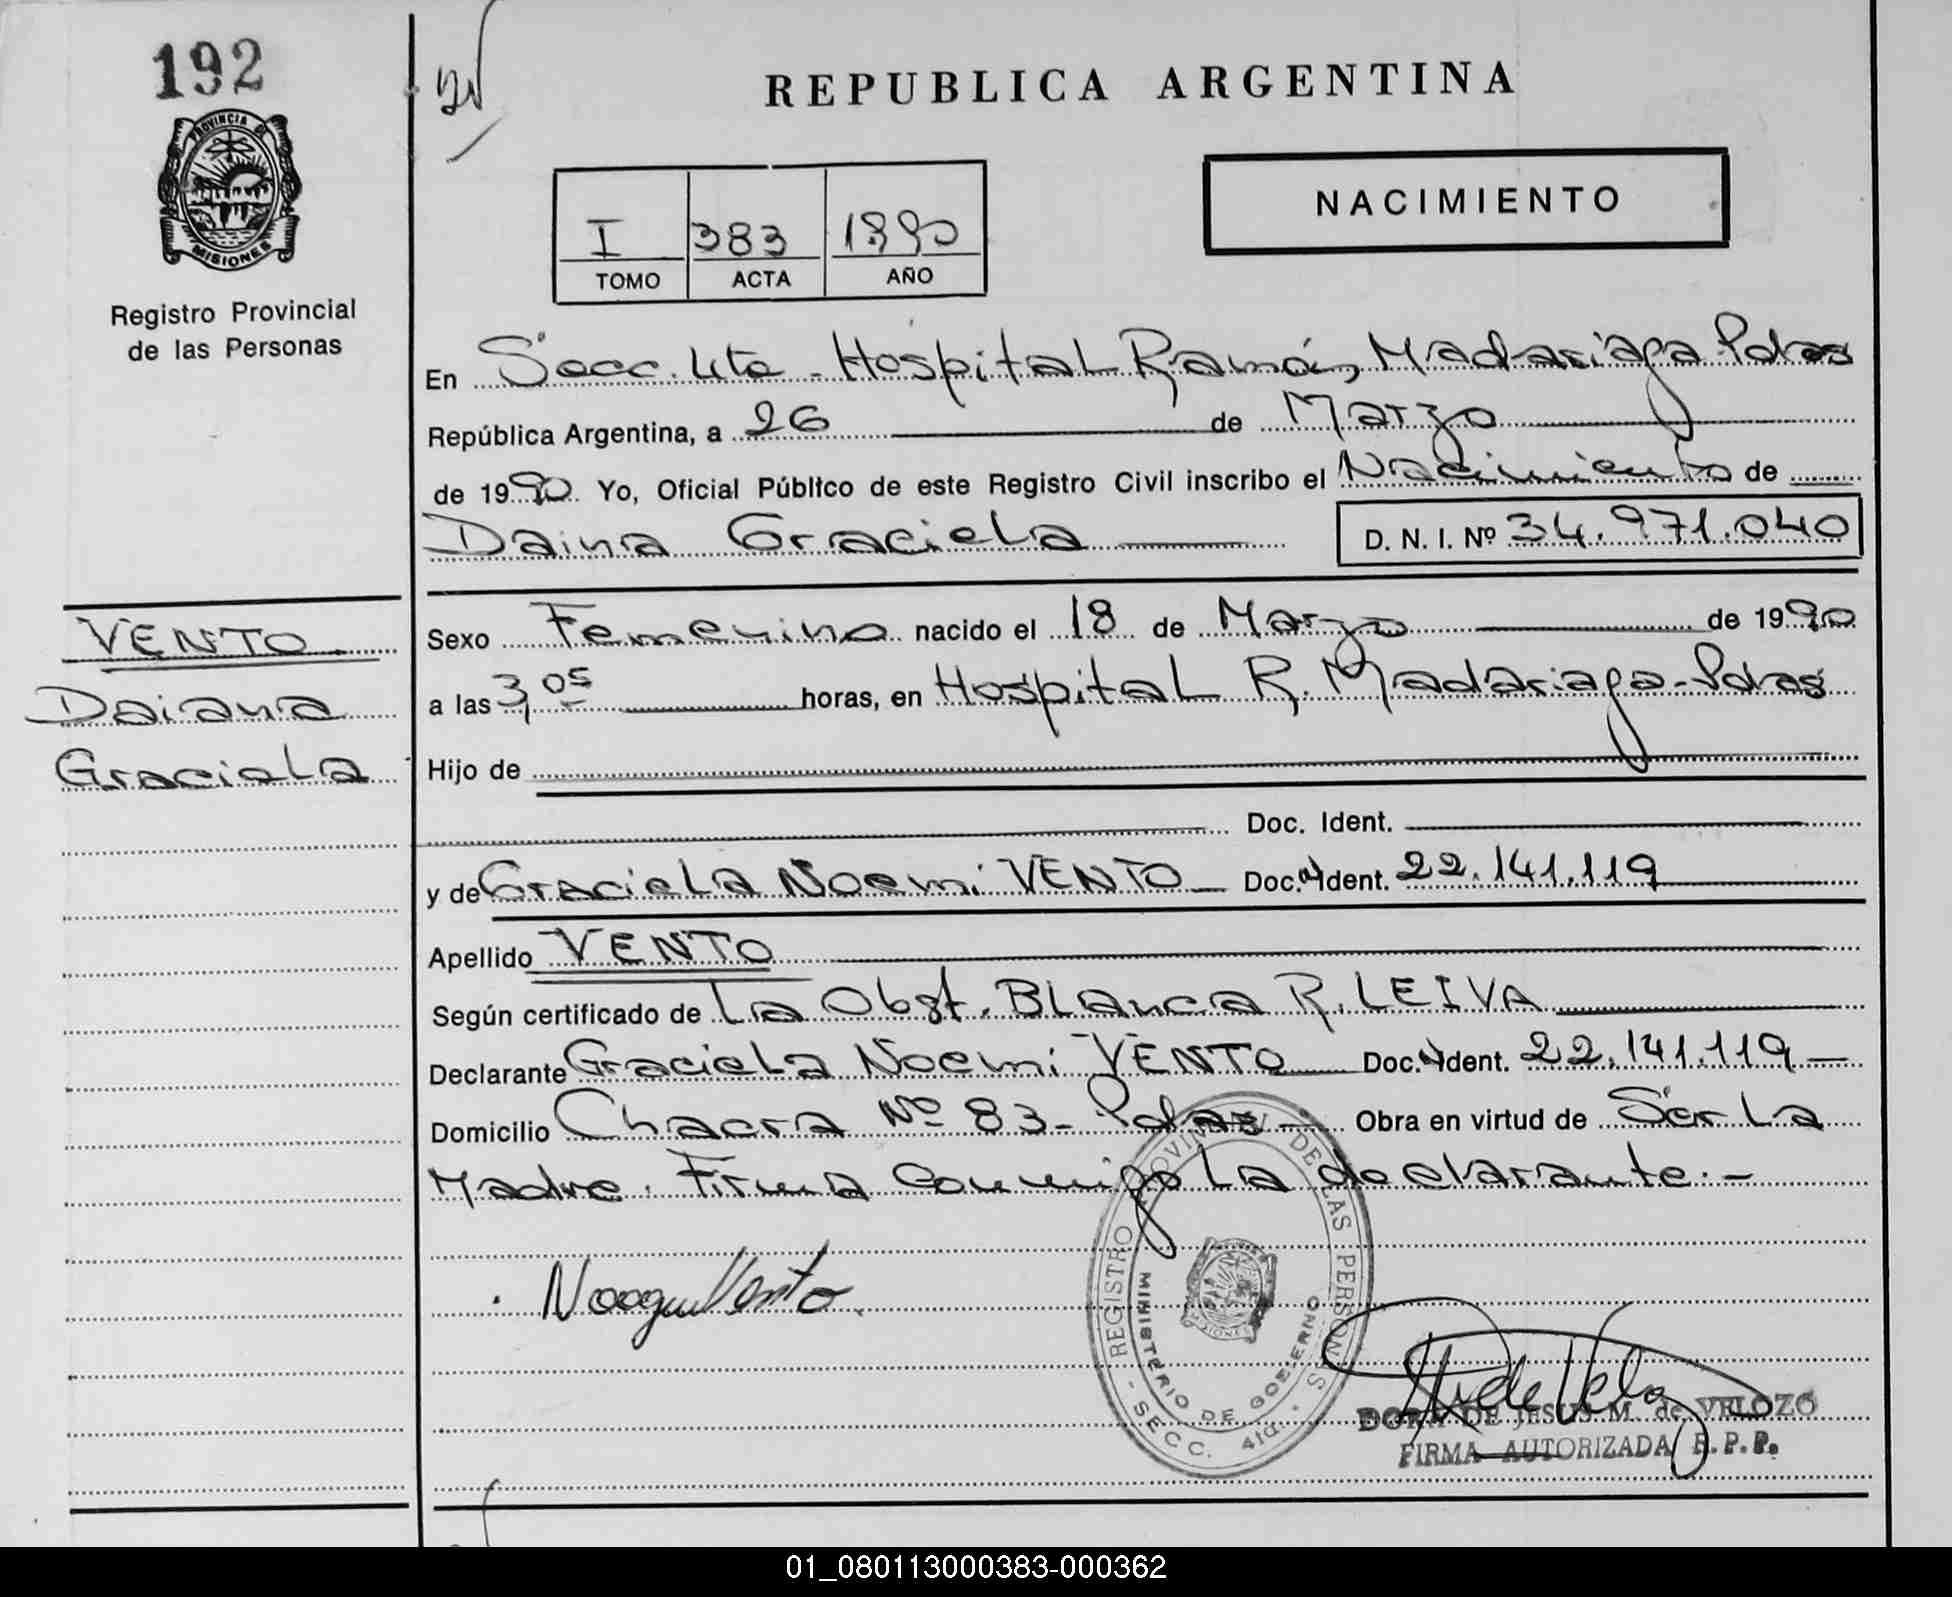 192
PROVINCIA DE
MISIONES
Registro Provincial
de las Personas
REPUBLICA ARGENTINA
NACIMIENTO
I 383 1990
TOMO ACTA AÑO
En Secc. 4ta - Hospital Ramón Madariaga - Pdas
República Argentina, a 26 de Marzo
de 1990 Yo, Oficial Público de este Registro Civil inscribo el Nacimiento de
Daina Graciela D. N. I. Nº 34.971.040
VENTO
Daiana
Graciela
Sexo Femenino nacido el 18 de Marzo de 1990
a las 3,05 horas, en Hospital R. Madariaga - Pdas
Hijo de
Doc. Ident.
y de Graciela Noemi VENTO Doc. Ident. 22.141.119
Apellido VENTO
Según certificado de La Obst. Blanca R. LEIVA
Declarante Graciela Noemi VENTO Doc. Ident. 22.141.119
Domicilio Chacra Nº 83 - Pdas - Obra en virtud de Ser La
Madre. Firma Conmigo La declarante.-
REGISTRO PROVINCIAL DE LAS PERSONAS
MINISTERIO DE GOBIERNO
MISIONES
- SECC. 4ta. -
DORA DE JESUS M. de VELOZO
FIRMA AUTORIZADA R.P.P.
01_080113000383-000362